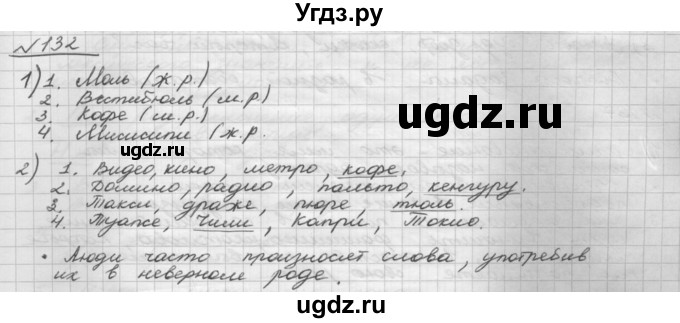 Угдз.ру
№132
1) 1. Моль (ж.р.)
2. Вестибюль (м.р.)
3. Кофе (м.р.)
4. Миссисипи (ж.р.
2) 1. Видео, кино, метро, кофе,
2. Домино, радио, пальто, кенгуру.
3. Такси, драже, пюре, тюль.
4. Туапсе, Чили, Капри, Токио.
• Люди часто произносят слова, употребив
их в неверном роде.
ugdz.ru
ugdz.ru
ugdz.ru
ugdz.ru